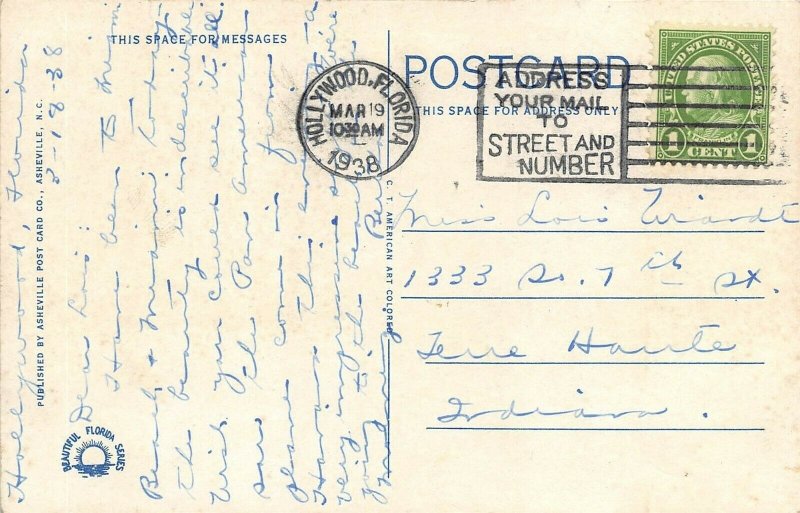 THIS SPACE FOR MESSAGES
POSTCARD
THIS SPACE FOR ADDRESS ONLY
HOLLYWOOD, FLORIDA
MAR 19
1030 AM
1938
ADDRESS
YOUR MAIL
TO
STREET AND
NUMBER
UNITED STATES POSTAGE
1 CENT 1
Hollywood, Florida
3-18-38
Dear Lois:
Have been to Miami
Beach & Miami today.
The beauty is indescribable
Wish you could see it all.
Saw the Pan American
planes come in from
Havana this eve - a
very impressive sight. We're
going to the beach
Miss Lois Wiandt
1333 So. 7th St.
Terre Haute
Indiana.
PUBLISHED BY ASHEVILLE POST CARD CO., ASHEVILLE, N.C.
C. T. AMERICAN ART COLORED
BEAUTIFUL FLORIDA SERIES